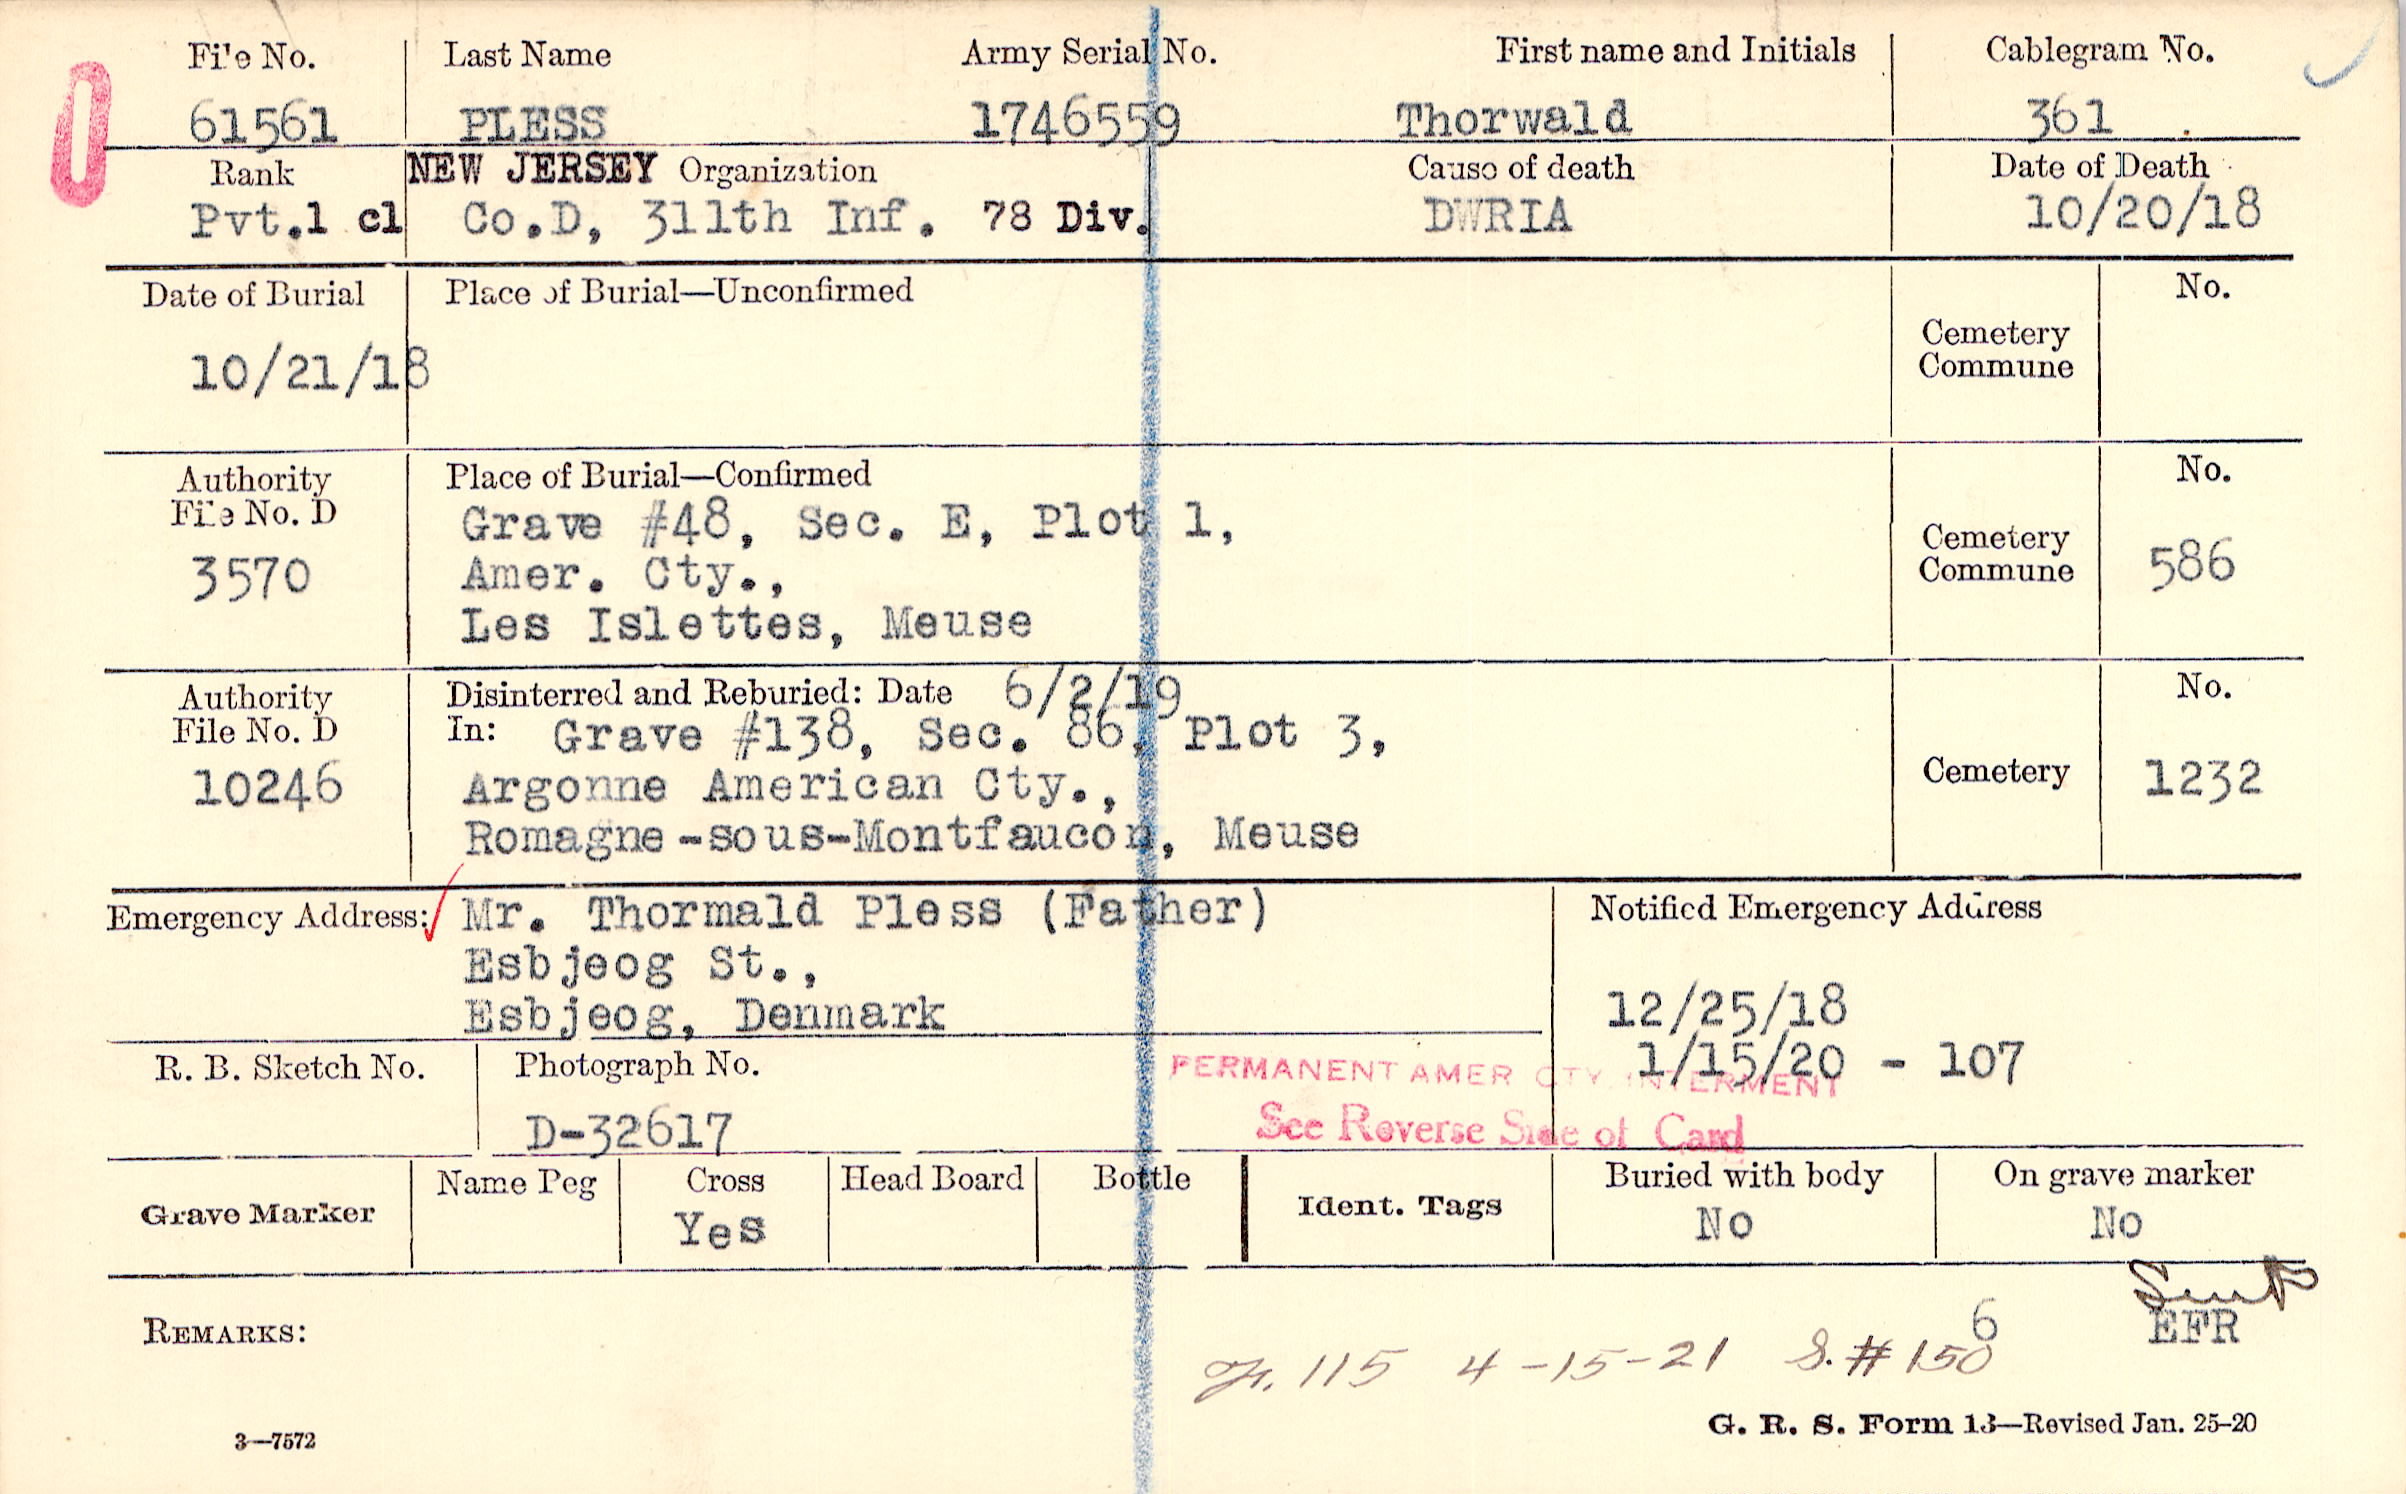 File No. Last Name Army Serial No. First name and Initials Cablegram No.
61561 PLESS 1746559 Thorwald 361
Rank NEW JERSEY Organization Cause of death Date of Death
Pvt.1 cl Co.D, 311th Inf. 78 Div. DWRIA 10/20/18
Date of Burial Place of Burial—Unconfirmed No.
Cemetery
Commune
10/21/18
Authority Place of Burial—Confirmed No.
File No. D Grave #48, Sec. E, Plot 1,
Cemetery
3570 Amer. Cty., Commune 586
Les Islettes, Meuse
Authority Disinterred and Reburied: Date 6/2/19 No.
File No. D In: Grave #138, Sec. 86, Plot 3,
10246 Argonne American Cty., Cemetery 1232
Romagne-sous-Montfaucon, Meuse
Emergency Address: Mr. Thormald Pless (Father) Notified Emergency Address
Esbjeog St.,
Esbjeog, Denmark 12/25/18
1/15/20 - 107
R. B. Sketch No. Photograph No. PERMANENT AMER CTY. INTERMENT
D-32617 See Reverse Side of Card
Grave Marker Name Peg Cross Head Board Bottle Ident. Tags Buried with body On grave marker
Yes No No
Sent
REMARKS: 6 EFR
115 4-15-21 S. # 150
3—7572 G. R. S. Form 13—Revised Jan. 25-20